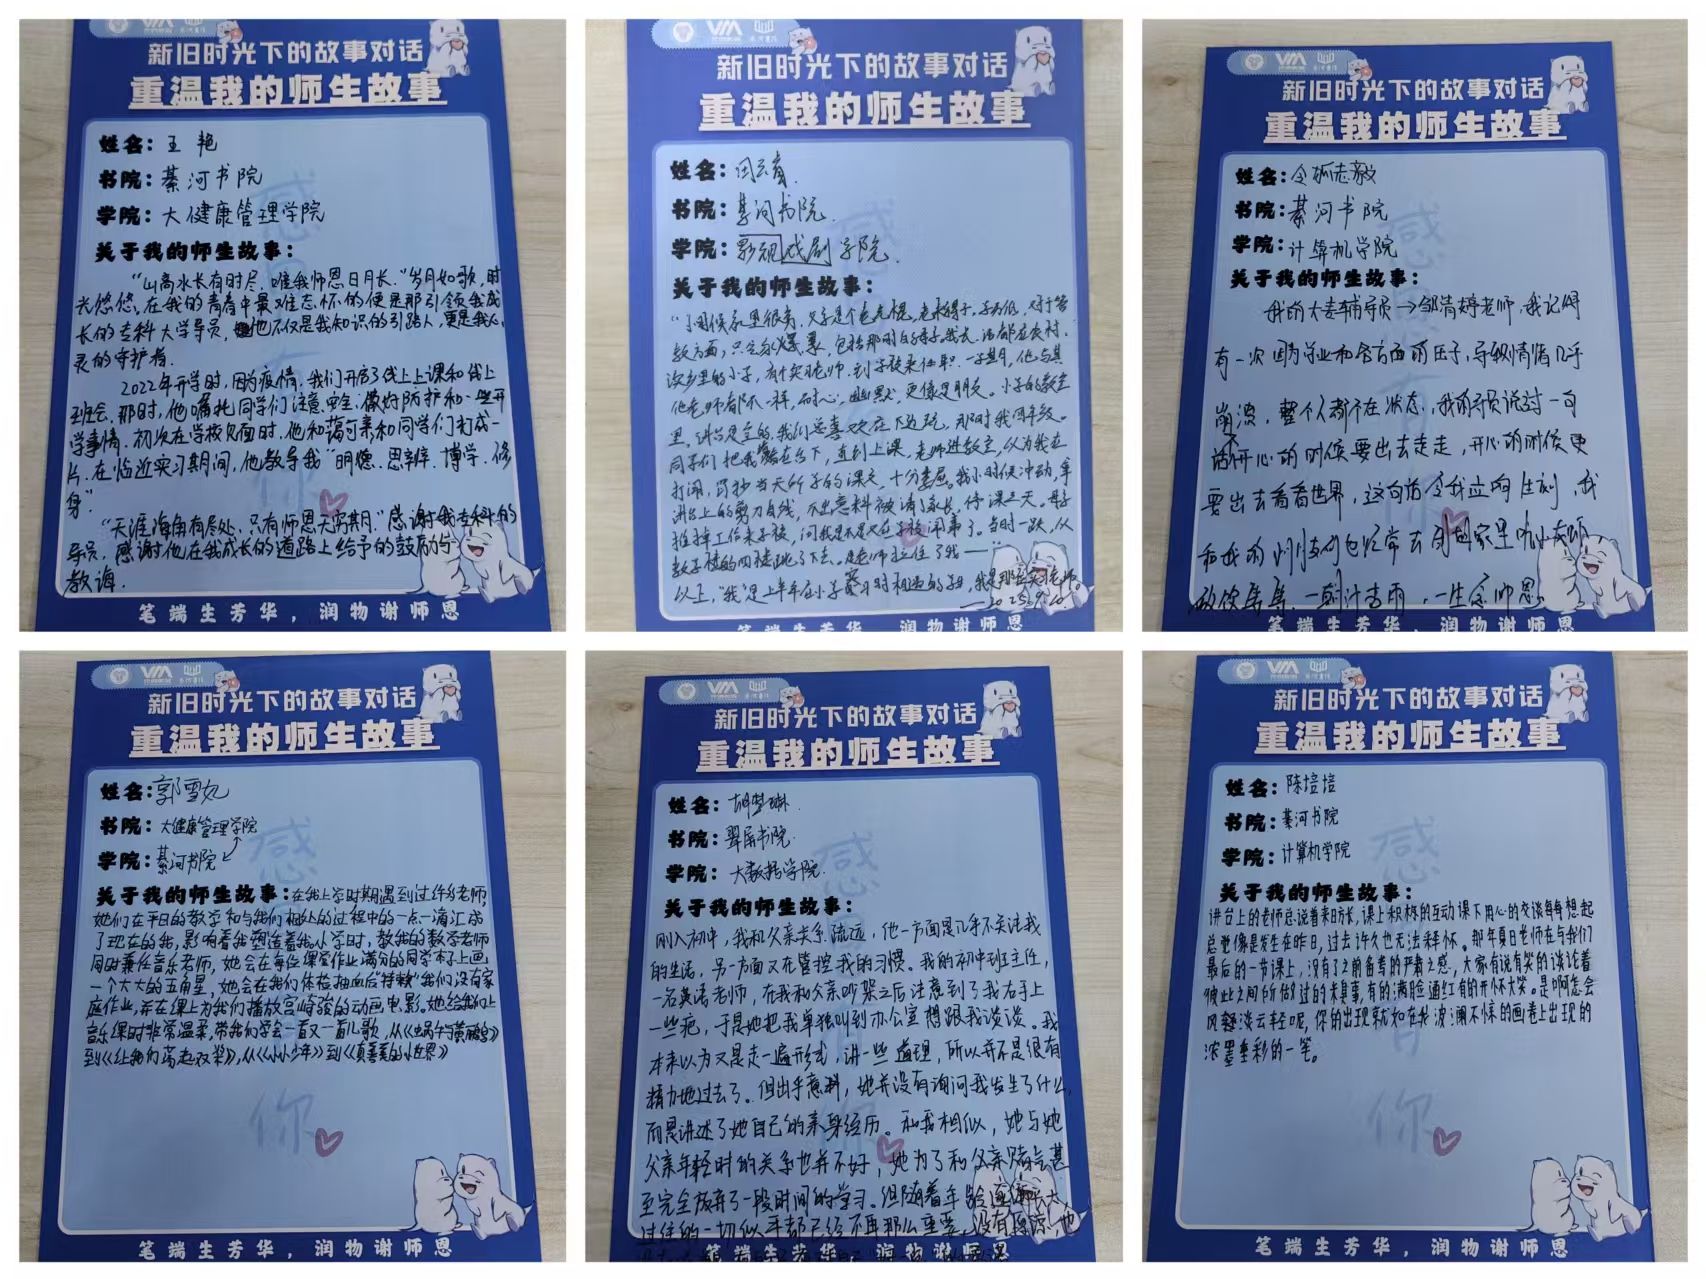 新旧时光下的故事对话
重温我的师生故事
姓名：王艳
书院：綦河书院
学院：大健康管理学院
关于我的师生故事：
"山高水长有时尽，唯我师恩日月长."岁月如歌，时
光悠悠，在我的青春中最难忘怀的便是那引领我成
长的专科大学导员，他不仅是我知识的引路人，更是我心
灵的守护者.
2022年开学时，因为疫情，我们开启了线上上课和线上
班会，那时，他嘱托同学们注意安全，做好防护和一些开
学事情.初次在学校见面时，他和蔼可亲和同学们打成一
片.在临近实习期间，他教导我"明德、思辨、博学、修
身"
"天涯海角有尽处，只有师恩无穷期."感谢我专科的
导员，感谢他在我成长的道路上给予的鼓励与
教诲.
感
你
笔端生芳华，润物谢师恩
新旧时光下的故事对话
重温我的师生故事
姓名：
书院：綦河书院.
学院：影视戏剧学院.
关于我的师生故事：
"小时候家里很穷，父亲是个
教方面，只
他老师都不一样，耐心，幽默，更像是朋友.
里，讲台是空的，我们总喜欢在下边玩，那时我四年级.
同学们把我 在台下，直到上课，老师进教室，以为我在
打闹，罚抄当天所学的课文，十分委屈。我小时候冲动，拿
讲台上的剪刀 ，不出意料被请了家长，停课三天。母亲
推掉工作来学校，问我是不是又在学校闹事了。当时一跃，从
教学楼的四楼跳了下去。是老师拉住了我——"
以上，"我"是上半年在小学 习时相遇的 ，我是那位实习老师。
笔端生芳华，润物谢师恩
新旧时光下的故事对话
重温我的师生故事
姓名：令狐志毅
书院：綦河书院
学院：计算机学院
关于我的师生故事：
我的大专辅导员→邹清婷老师，我记得
有一次因为学业和各方面的压力，导致情绪几乎
崩溃，整个人都不在状态，我的导员说过一句
话不开心的时候要出去走走，开心的时候更
要出去看看世界，这句话令我立
和我的 们也经常去 家里
做饭 ，一 ，一生念师恩
笔端生芳华，润物谢师恩
新旧时光下的故事对话
重温我的师生故事
姓名：郭雪妃
书院：大健康管理学院
学院：綦河书院
关于我的师生故事：在我上学时期遇到过许多老师，
她们在平日的教学和与我们相处的过程中的一点一滴汇成
了现在的我，影响着我塑造着我。小学时，教我的数学老师
同时兼任音乐老师，她会在每位课堂作业满分的同学本子上画
一个大大的五角星，她会在我们体检抽血后"特赦"我们没有家
庭作业，并在课上为我们播放宫崎骏的动画电影。她给我们上
音乐课时非常温柔，带我们学会一首又一首儿歌，从《蜗牛与黄鹂鸟》
到《让我们荡起双桨》，从《小小少年》到《真善美的小世界》
感
你
笔端生芳华，润物谢师恩
新旧时光下的故事对话
重温我的师生故事
姓名：胡梦琳
书院：翠屏书院.
学院：大数据学院.
关于我的师生故事：
刚入初中，我和父亲关系疏远，他一方面是几乎不关注我
的生活，另一方面又在管控我的习惯。我的初中班主任，
一名英语老师，在我和父亲吵架之后注意到了我右手上
一些疤，于是她把我单独叫到办公室想跟我谈谈。我
本来以为又是走一遍形式，讲一些道理，所以并不是很有
精力地过去了。但出乎意料，她并没有询问我发生了什么，
而是讲述了她自己的亲身经历。和我相似，她与她
父亲年轻时的关系也并不好，她为了和父亲赌气甚
至完全放弃了一段时间的学习。但随着年龄逐渐
过往的一切似乎都已经不再那么重要。没有原谅，也
笔端生芳华，润物谢师恩
新旧时光下的故事对话
重温我的师生故事
姓名：陈培培
书院：綦河书院
学院：计算机学院
关于我的师生故事：
讲台上的老师总说着来日方长，课上积极的互动课下用心的交谈每每想起
总觉像是发生在昨日，过去许久也无法释怀。那年夏日老师在与我们
最后的一节课上，没有了之前备考的严肃之感，大家有说有笑的谈论着
彼此之间所做过的 事，有的满脸通红有的开怀大笑。是啊怎会
风轻淡云轻呢，你的出现就如在我波澜不惊的画卷上出现的
浓墨重彩的一笔。
感
你
笔端生芳华，润物谢师恩